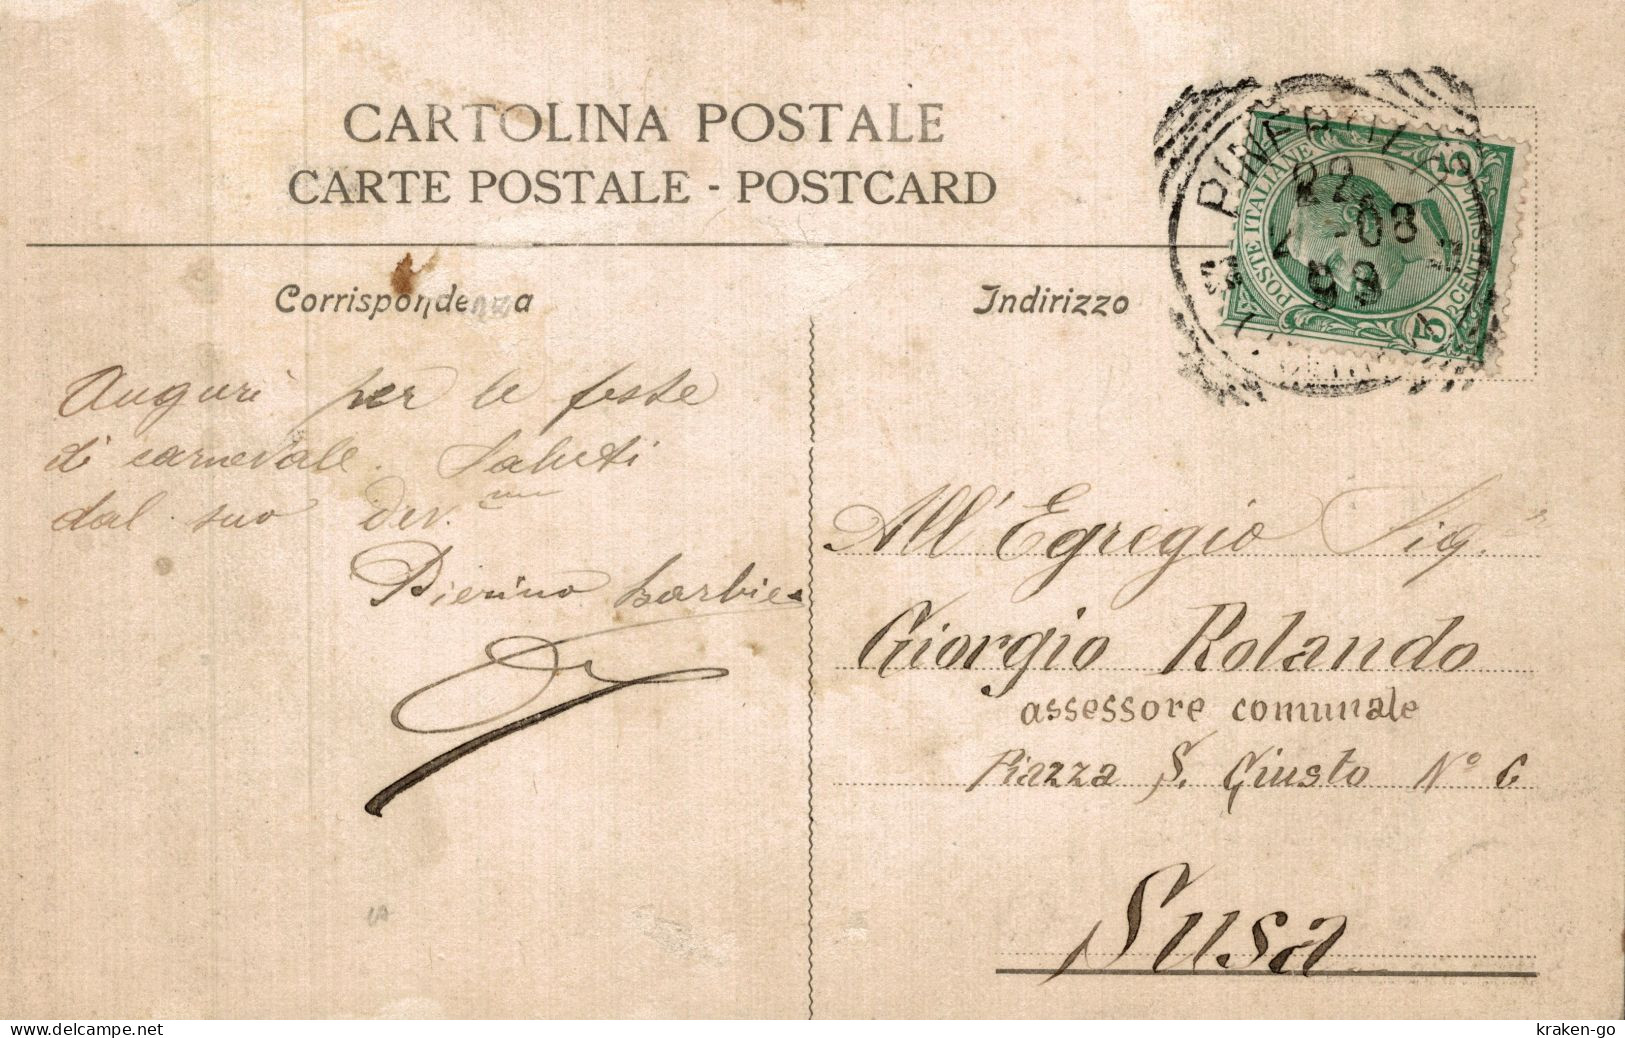 CARTOLINA POSTALE
CARTE POSTALE - POSTCARD
Corrispondenza
Indirizzo
POSTE ITALIANE
CENTESIMI
5
5
22
08
Auguri per le feste
di carnevale. Saluti
dal suo dev.
Pierino
All'Egregio Sig.r
Giorgio Rolando
assessore comunale
Piazza S. Giusto N° 6
Susa
delcampe.net
kraken-go